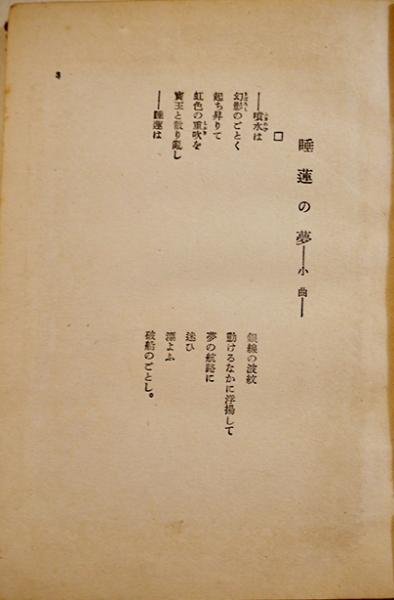 睡蓮の夢――小曲――
□
――噴水は
幻影のごとく
起ち昇りて
虹色の重吹を
寳玉と散り亂し
――睡蓮は
銀線の波紋
動けるなかに浮揚して
夢の航路に
迷ひ
漂よふ
破船のごとし。
3